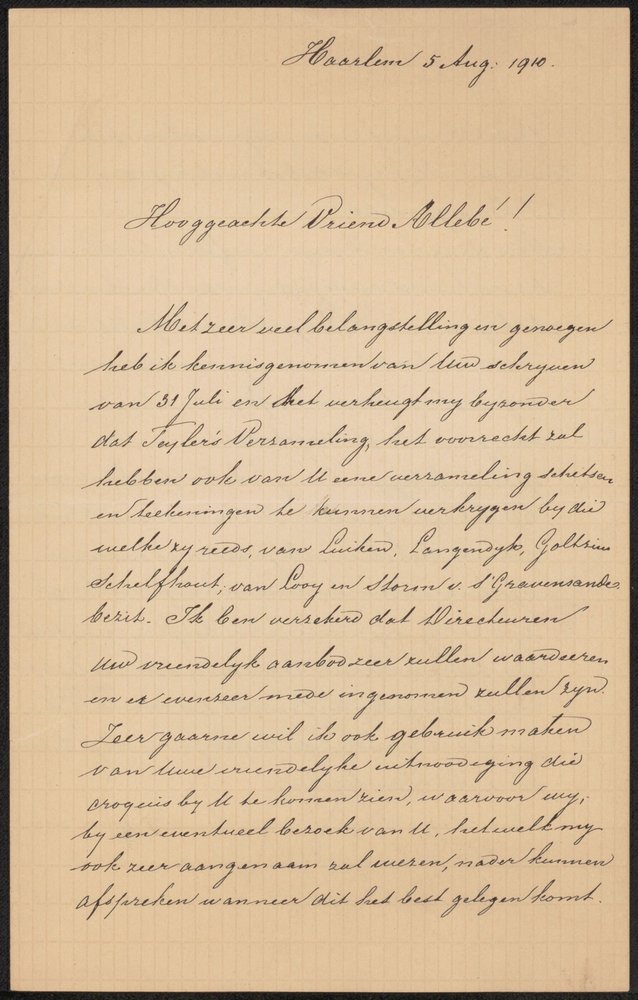 Haarlem 5 Aug: 1910.
Hooggeachte Vriend Allebé!
Met zeer veel belangstelling en genoegen
heb ik kennisgenomen van Uw schryven
van 31 Juli en het verheugt my byzonder
dat Teyler's Verzameling, het voorrecht zal
hebben ook van U eene verzameling schetsen
en teekeningen te kunnen verkrygen by die
welke zy reeds, van Luiken, Langendyk, Goltzius
Schelfhout, van Looy en Storm v. s'Gravensande
bezit. Ik ben verzekerd dat Directeuren
Uw vriendelyk aanbod zeer zullen waardeeren
en er evenzeer mede ingenomen zullen zyn.
Zeer gaarne wil ik ook gebruik maken
van Uwe vriendelyke uitnoodiging die
croquis by U te komen zien, waarvoor wy,
by een eventueel bezoek van U, hetwelk my
ook zeer aangenaam zal wezen, nader kunnen
afspreken wanneer dit het best gelegen komt.